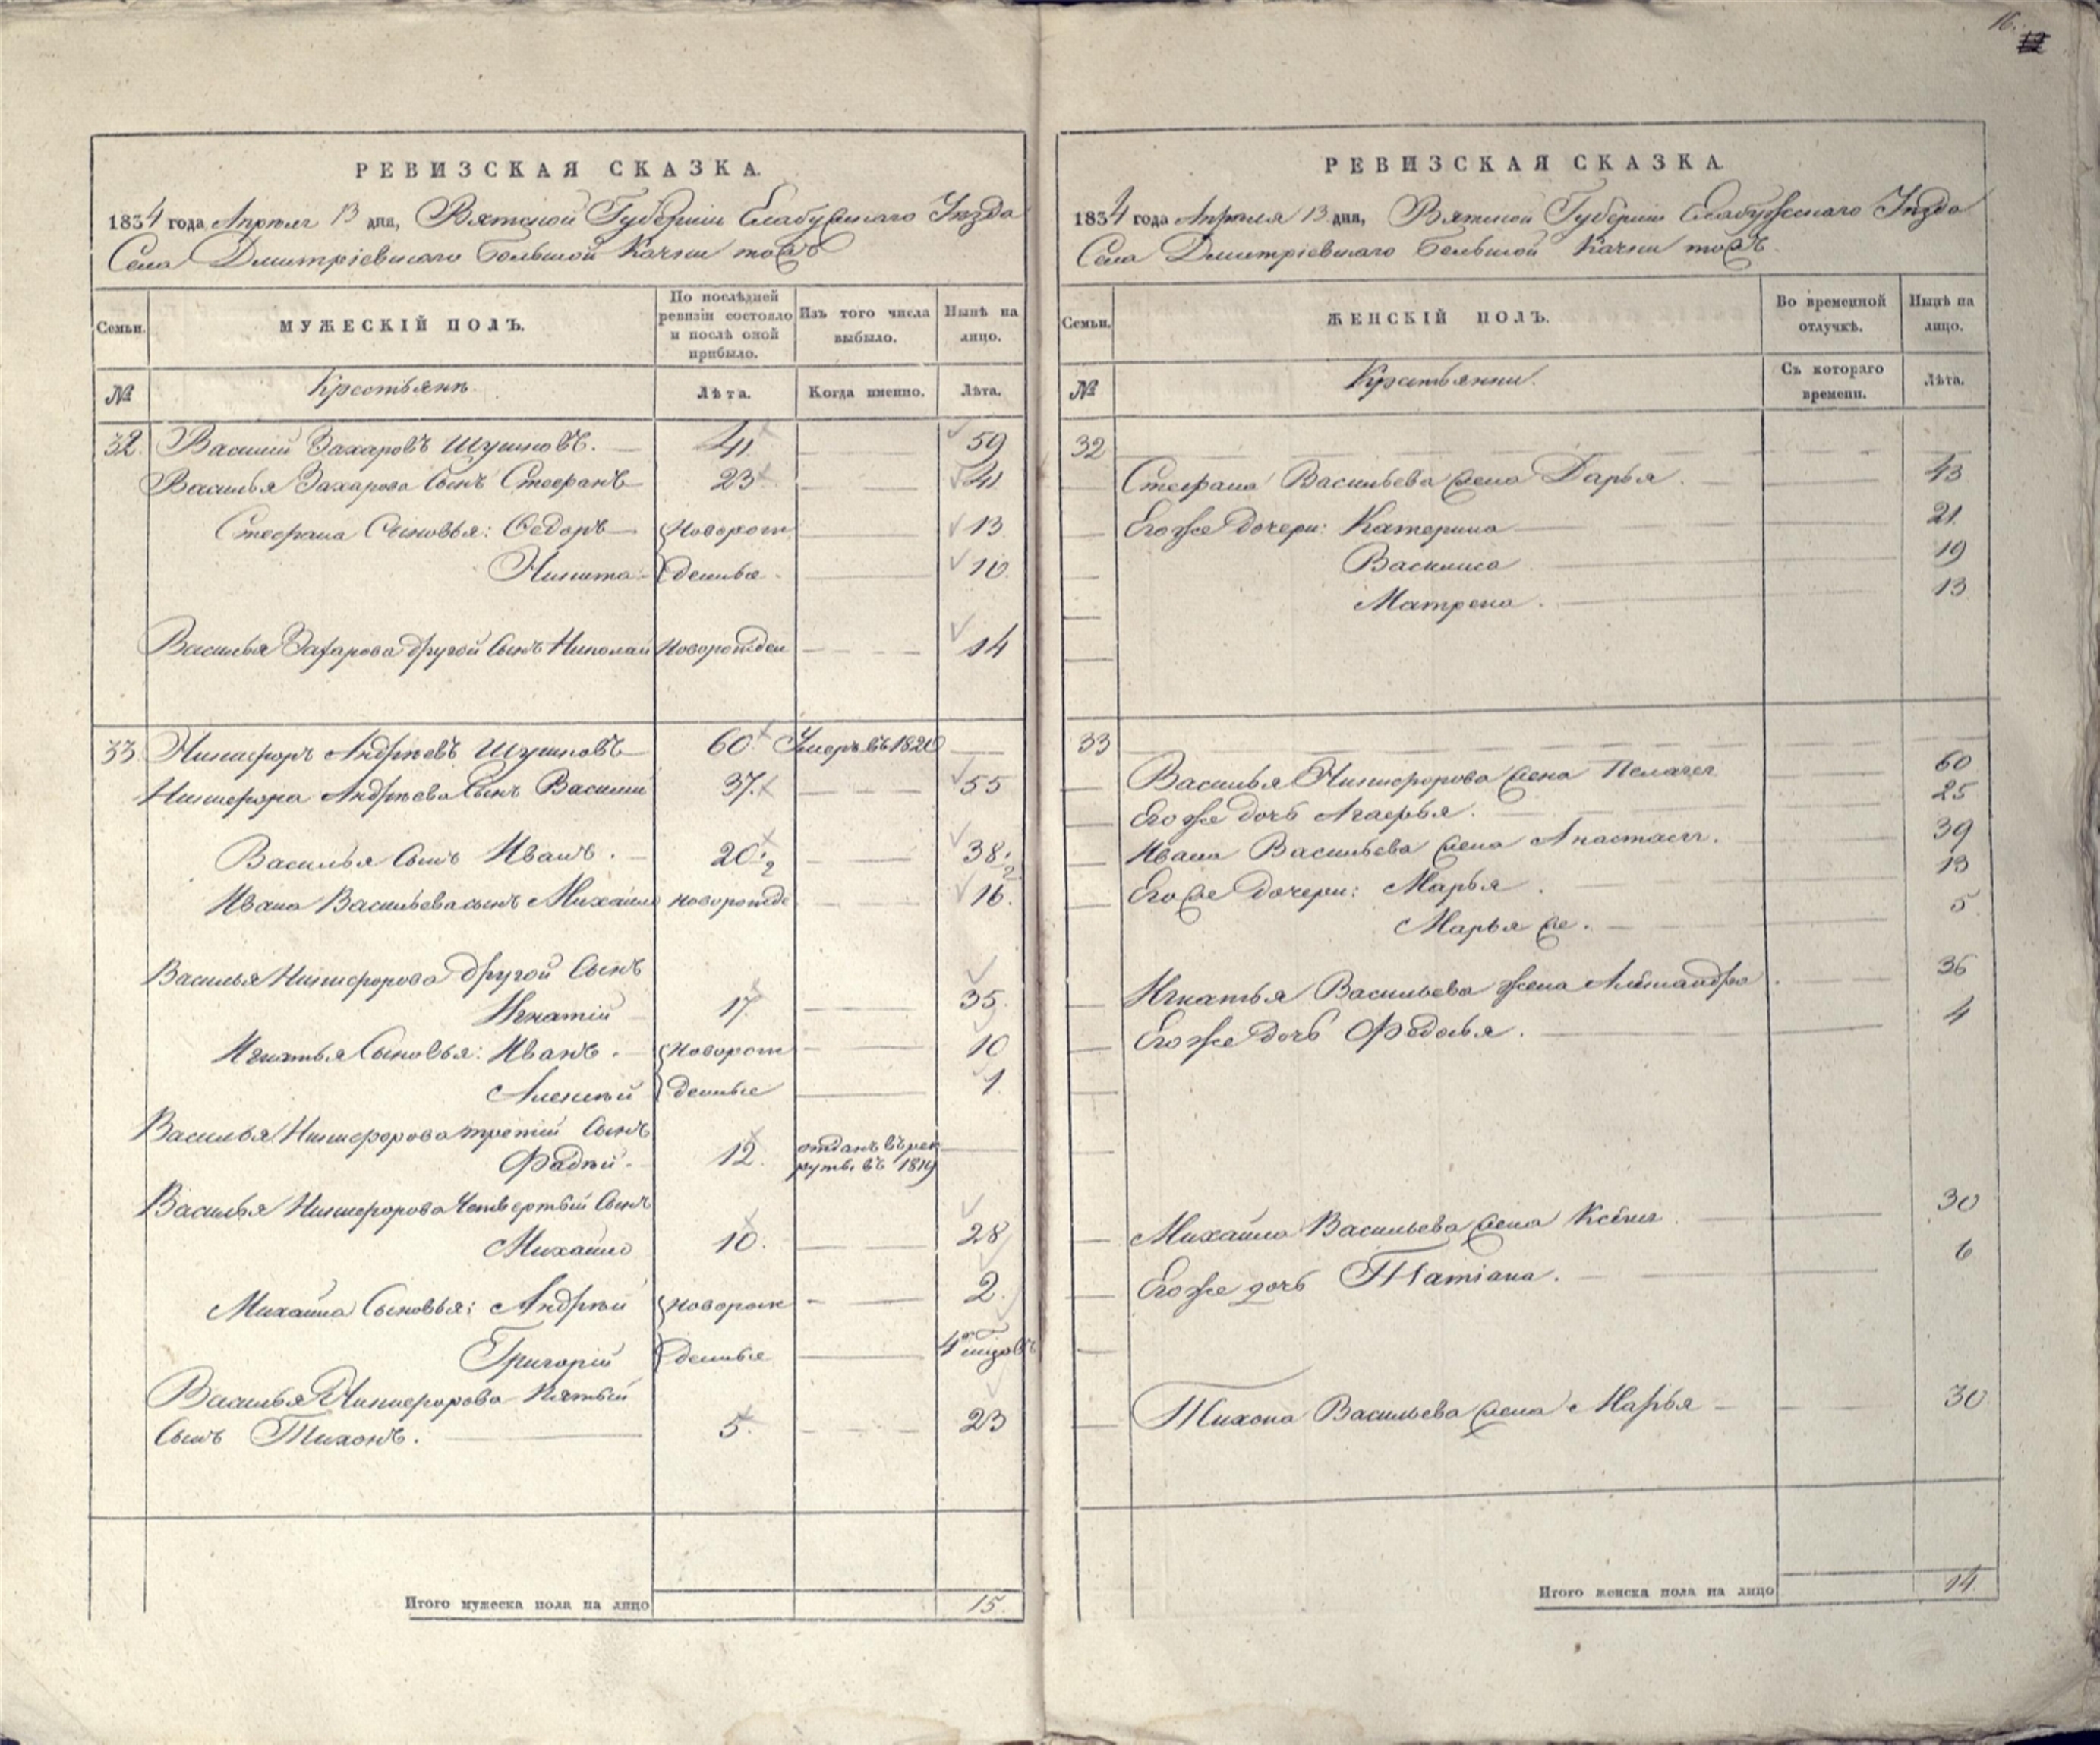 16.
РЕВИЗСКАЯ СКАЗКА.
1834 года Апрѣля 13 дня, Вятской Губерніи Елабужскаго Уѣзда
Села Дмитріевскаго Большой Качки тожъ
Семьи. МУЖЕСКІЙ ПОЛЪ. По послѣдней ревизіи состояло и послѣ оной прибыло. Изъ того числа выбыло. Нынѣ на лицо.
№ Крестьянѣ. Лѣта. Когда именно. Лѣта.
32. Василій Захаровъ Шушковъ. 41 59
Василья Захарова сынъ Стефанъ 23 41
Стефана Сыновья: Ѳедоръ Новорож 13
Никита денные 10.
Василья Захарова другой сынъ Николай Новорожден 14
33 Никифоръ Андрѣевъ Шушковъ 60 Умеръ въ 1820
Никифора Андрѣева сынъ Василій 37. 55
Василья сынъ Иванъ. 20 1/2 38 1/2
Ивана Васильева сынъ Михайло новорожде 16.
Василья Никифорова другой Сынъ
Игнатій 17. 35.
Игнатья Сыновья: Иванъ. Новорож 10
Алексѣй денные 1
Василья Никифорова третій Сынъ
Фадѣй. 12. отданъ въ рек
руты въ 1819
Василья Никифорова Четвертый Сынъ
Михайло 10. 28
Михайла Сыновья: Андрѣй новорож 2.
Григорій денные 4
Василья Никифорова пятый
Сынъ Тихонъ. 5. 23
Итого мужеска пола на лицо 15.
РЕВИЗСКАЯ СКАЗКА
1834 года Апрѣля 13 дня, Вятской Губерніи Елабужскаго Уѣзда
Села Дмитріевскаго Большой Качки тожъ.
Семьи. ЖЕНСКІЙ ПОЛЪ. Во временной отлучкѣ. Нынѣ на лицо.
№ Крестьянки. Съ котораго времени. Лѣта.
32
Стефана Васильева жена Дарья. 43
Его же дочери: Катерина 21
Василиса 19
Матрена. 13
33
Василья Никифорова жена Пелагея 60
Его же дочь Агафья. 25
Ивана Васильева жена Анастасія. 39
Его же дочери: Марья. 13
Марья же. 5
Игнатья Васильева жена Александра. 36
Его же дочь Федосья. 4
Михайла Васильева жена Ксенія. 30
Его же дочь Татіана. 6
Тихона Васильева жена Марья 30
Итого женска пола на лицо 14.